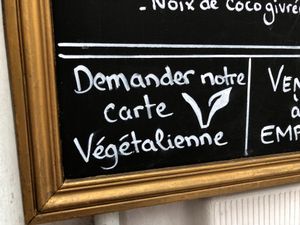 - Noix de coco givré
Demander notre
carte
Végétalienne
VEN
à
EMP